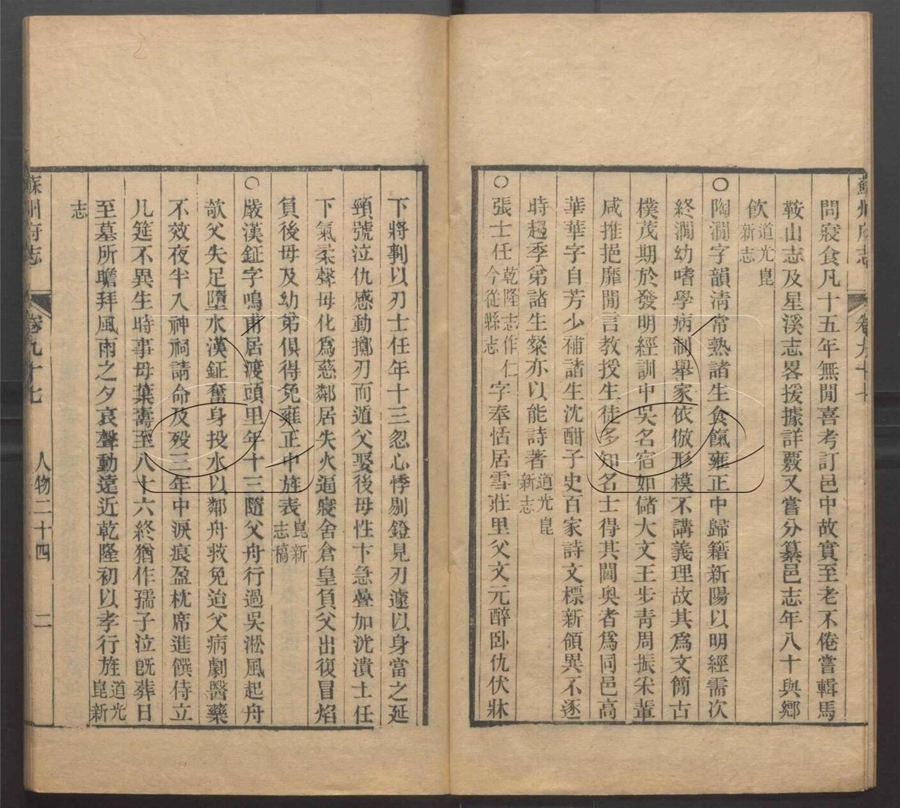 問寢食凡十五年無閒喜考訂邑中故實至老不倦嘗輯馬
鞍山志及星溪志畧援據詳覈又嘗分纂邑志年八十與鄉
飲道光崑新志
○陶澗字韻清常熟諸生食餼雍正中歸籍新陽以明經需次
終澗幼嗜學病制舉家依倣形模不講義理故其爲文簡古
樸茂期於發明經訓中吳名宿如儲大文王步靑周振采輩
咸推挹靡閒言教授生徒多知名士得其閫奥者爲同邑高
華華字自芳少補諸生沈酣子史百家詩文標新領異不逐
時趨季弟諸生燊亦以能詩著道光崑新志
○張士任乾隆志作仁今從縣志字奉恬居雪莊里父文元醉卧仇伏牀
下將剚以刃士任年十三忽心悸剔鐙見刃遽以身當之延
頸號泣仇感動擲刃而遁父娶後母性卞急疊加沈潰士任
下氣柔聲母化爲慈鄰居失火逼寢舍倉皇負父出復冒焰
負後母及幼弟俱得免雍正中旌表崑新志稿
○嚴漢鉦字鳴甫居渡頭里年十三隨父舟行過吳淞風起舟
欹父失足墮水漢鉦奮身投水以鄰舟救免迨父病劇醫藥
不效夜半入神祠請命及歿三年中淚痕盈枕席進饌侍立
几筵不異生時事母葉壽至八十六終猶作孺子泣旣葬日
至墓所瞻拜風雨之夕哀聲動遠近乾隆初以孝行旌道光崑新
志
蘇州府志 卷九十七 人物二十四 二